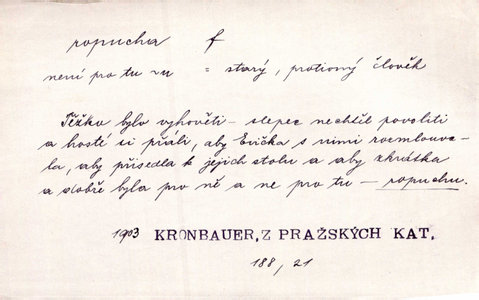 ropucha f
není pro tu ~u = starý, protivný člověk
Těžko bylo vyhověti – slepec nechtěl povoliti
a hosté si přáli, aby Evička s nimi rozmlouva-
la, aby přisedla k jejich stolu a aby zkrátka
a dobře byla pro ně a ne pro tu – ropuchu.
1903 KRONBAUER, Z PRAŽSKÝCH KAT.
188, 21